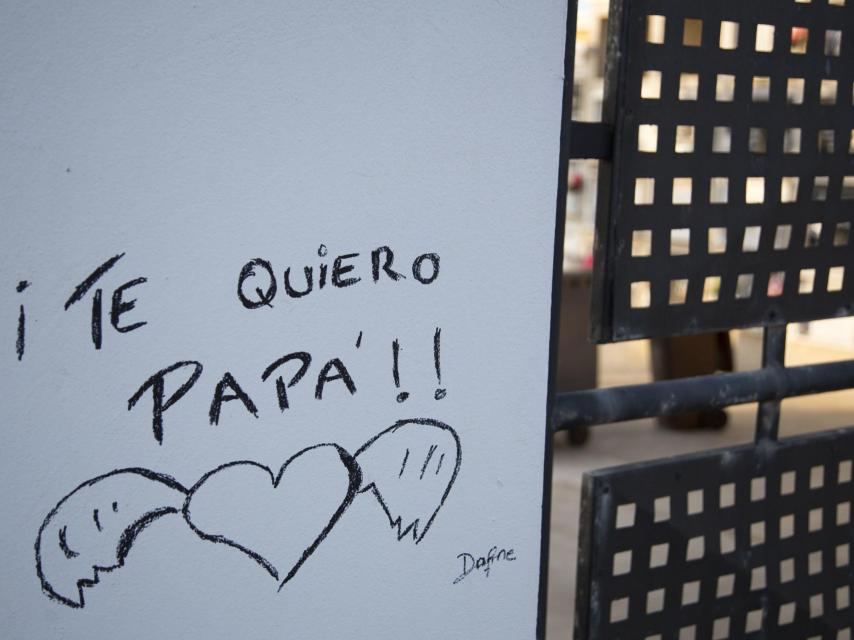 ¡ TE QUIERO
PAPÁ!!
Dafne